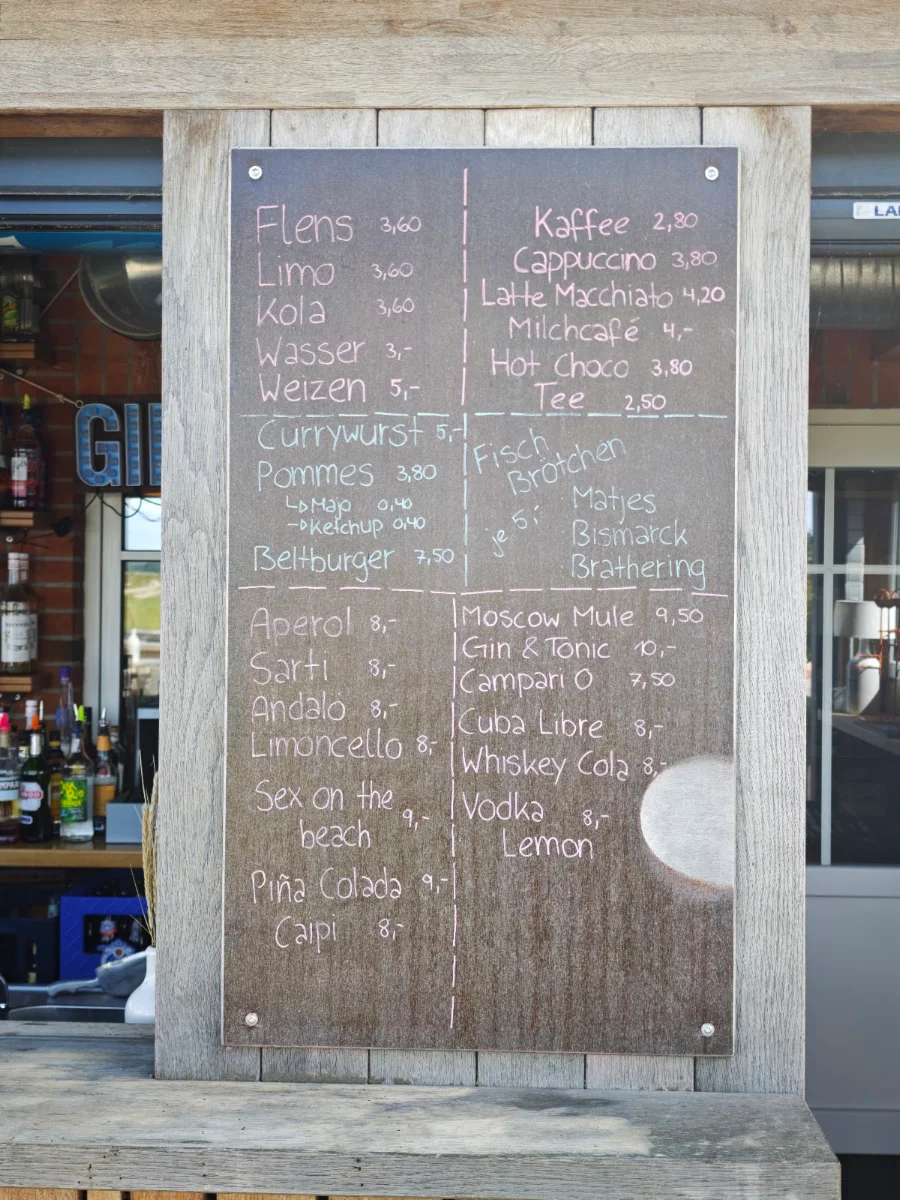 Flens 3,60
Limo 3,60
Kola 3,60
Wasser 3,-
Weizen 5,-
Kaffee 2,80
Cappuccino 3,80
Latte Macchiato 4,20
Milchcafé 4,-
Hot Choco 3,80
Tee 2,50
Currywurst 5,-
Pommes 3,80
↳Majo 0,40
→Ketchup 0,40
Beltburger 7,50
Fisch
Brötchen
je 5,-
Matjes
Bismarck
Brathering
Aperol 8,-
Sarti 8,-
Andalö 8,-
Limoncello 8,-
Sex on the
beach 9,-
Piña Colada 9,-
Caipi 8,-
Moscow Mule 9,50
Gin & Tonic 10,-
Campari O 7,50
Cuba Libre 8,-
Whiskey Cola 8,-
Vodka 8,-
Lemon